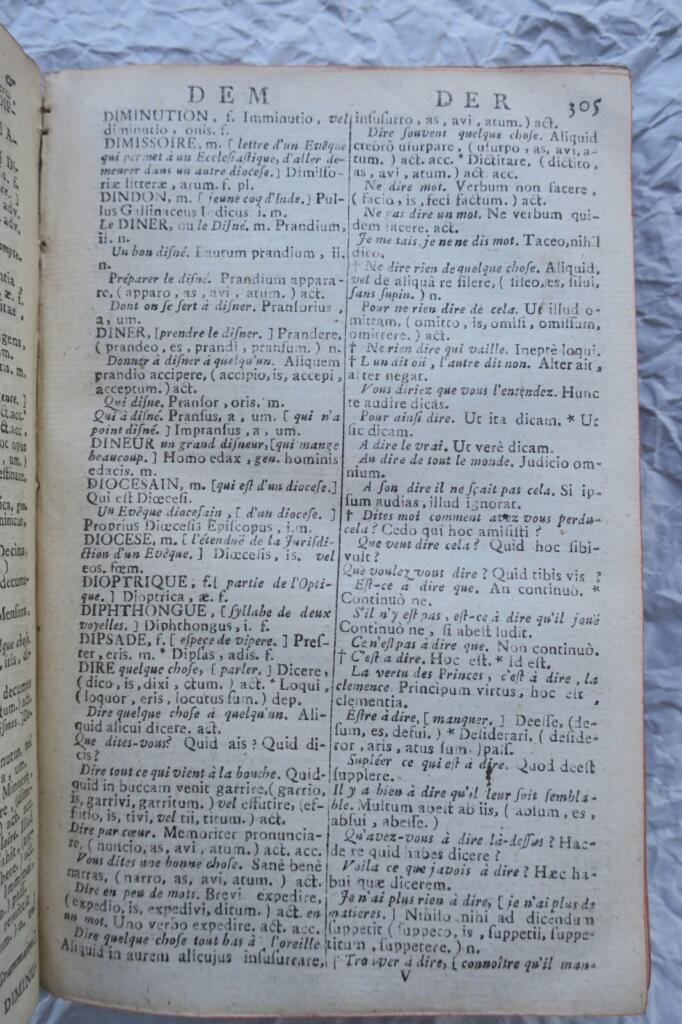 DEM
DER
305
DIMINUTION, f. Imminutio, vel
diminutio, onis. f.
DIMISSOIRE, m. [ lettre d'un Evêque
qui permet à un Ecclesiastique, d'aller de-
meurer dans un autre diocese. ] Dimisso-
riæ litteræ, arum. f. pl.
DINDON, m. [ jeune coq d'Inde. ] Pul-
lus Gallinaceus Indicus. i. m.
Le DINER, ou le Disné. m. Prandium,
ii. n.
Un bon disné. Lautum prandium, ii.
n.
Préparer le disné. Prandium appara-
re, ( apparo, as, avi, atum. ) act.
Dont on se sert à disner. Pransorius,
a, um.
DINER, [prendre le disner. ] Prandere,
( prandeo, es, prandi, pransum. ) n.
Donner à disner à quelqu'un. Aliquem
prandio accipere, ( accipio, is, accepi,
acceptum. ) act.
Qui disne. Pransor, oris. m.
Qui a disné. Pransus, a, um. [ qui n'a
point disné. ] Impransus, a, um.
DINEUR un grand disneur, [qui mange
beaucoup. ] Homo edax, gen. hominis
edacis. m.
DIOCESAIN, m. [qui est d'un diocese. ]
Qui est Diœcesi.
Un Evêque diocesain, [ d'un diocese. ]
Proprius Diœcesis Episcopus, i. m.
DIOCESE, m. [ l'étenduë de la Jurisdi-
ction d'un Evêque. ] Diœcesis, is. vel
eos. fœm.
DIOPTRIQUE, f. [ partie de l'Opti-
que. ] Dioptrica, æ. f.
DIPHTHONGUE, [syllabe de deux
voyelles. ] Diphthongus, i. f.
DIPSADE, f. [ espece de vipere. ] Pres-
ter, eris. m. * Dipsas, adis. f.
DIRE quelque chose, [ parler. ] Dicere,
( dico, is, dixi, ctum. ) act. * Loqui,
( loquor, eris, locutus sum. ) dep.
Dire quelque chose à quelqu'un. Ali-
quid alicui dicere. act.
Que dites-vous? Quid ais? Quid di-
cis?
Dire tout ce qui vient à la bouche. Quid-
quid in buccam venit garrire, (garrio,
is, garrivi, garritum. ) vel effutire, (ef-
futio, is, tivi, vel tii, titum. ) act.
Dire par cœur. Memoriter pronuncia-
re, ( nuncio, as, avi, atum. ) act. acc.
Vous dites une bonne chose. Sanè benè
narras, ( narro, as, avi, atum. ) act.
Dire en peu de mots. Brevi expedire,
(expedio, is, expedivi, ditum. ) act. en
un mot. Uno verbo expedire. act. acc.
Dire quelque chose tout bas à l'oreille
Aliquid in aurem alicujus insusurrare,
insusurro, as, avi, atum. ) act.
Dire souvent quelque chose. Aliquid
crebrò usurpare, ( usurpo, as, avi, a-
tum. ) act. acc. * Dictitare, ( dictito,
as, avi, atum. ) act. acc.
Ne dire mot. Verbum non facere,
( facio, is, feci factum. ) act.
Ne pas dire un mot. Ne verbum qui-
dem facere. act.
Je me tais, je ne dis mot. Taceo, nihil
dico.
† Ne dire rien de quelque chose. Aliquid,
vel de aliqua re silere, ( sileo, es, silui,
sans supin. ) n.
Pour ne rien dire de cela. Ut illud o-
mittam, ( omitto, is, omisi, omissum,
omittere. ) act.
† Ne rien dire qui vaille. Ineptè loqui.
† L'un dit oüi, l'autre dit non. Alter ait,
alter negat.
Vous diriez que vous l'entendez. Hunc
te audire dicas.
Pour ainsi dire. Ut ita dicam. * Ut
sic dicam.
A dire le vrai. Ut verè dicam.
Au dire de tout le monde. Judicio om-
nium.
A son dire il ne sçait pas cela. Si ip-
sum audias, illud ignorat.
† Dites moi comment avez vous perdu
cela? Cedo qui hoc amisisti?
Que veut dire cela? Quid hoc sibi-
vult?
Que voulez vous dire? Quid tibi vis?
Est-ce a dire que. An continuò. *
Continuò ne.
S'il n'y est pas, est-ce à dire qu'il joüe
Continuò ne, si abest ludit.
Ce n'est pas à dire que. Non continuò.
† C'est a dire. Hoc est. * Id est.
La vertu des Princes, c'est à dire, la
clemence. Principum virtus, hoc est,
clementia.
Estre à dire, [ manquer. ] Deesse, (de-
sum, es, defui. ) * Desiderari, ( deside-
ror, aris, atus sum. ) pass.
Supléer ce qui est à dire. Quod deest
supplere.
Il y a bien à dire qu'il leur soit sembla-
ble. Multum abest ab iis, ( absum, es,
absui, abesse. )
Qu'avez-vous à dire là-dessus? Hac-
de re quid habes dicere?
Voila ce que j'avois à dire? Hæc ha-
bui quæ dicerem.
Je n'ai plus rien à dire, [ je n'ai plus de
matieres. ] Nihil mihi ad dicendum
suppetit ( suppeto, is, suppetii, suppe-
titum, suppetere. ) n.
† Trouver à dire, ( connoître qu'il man-
V